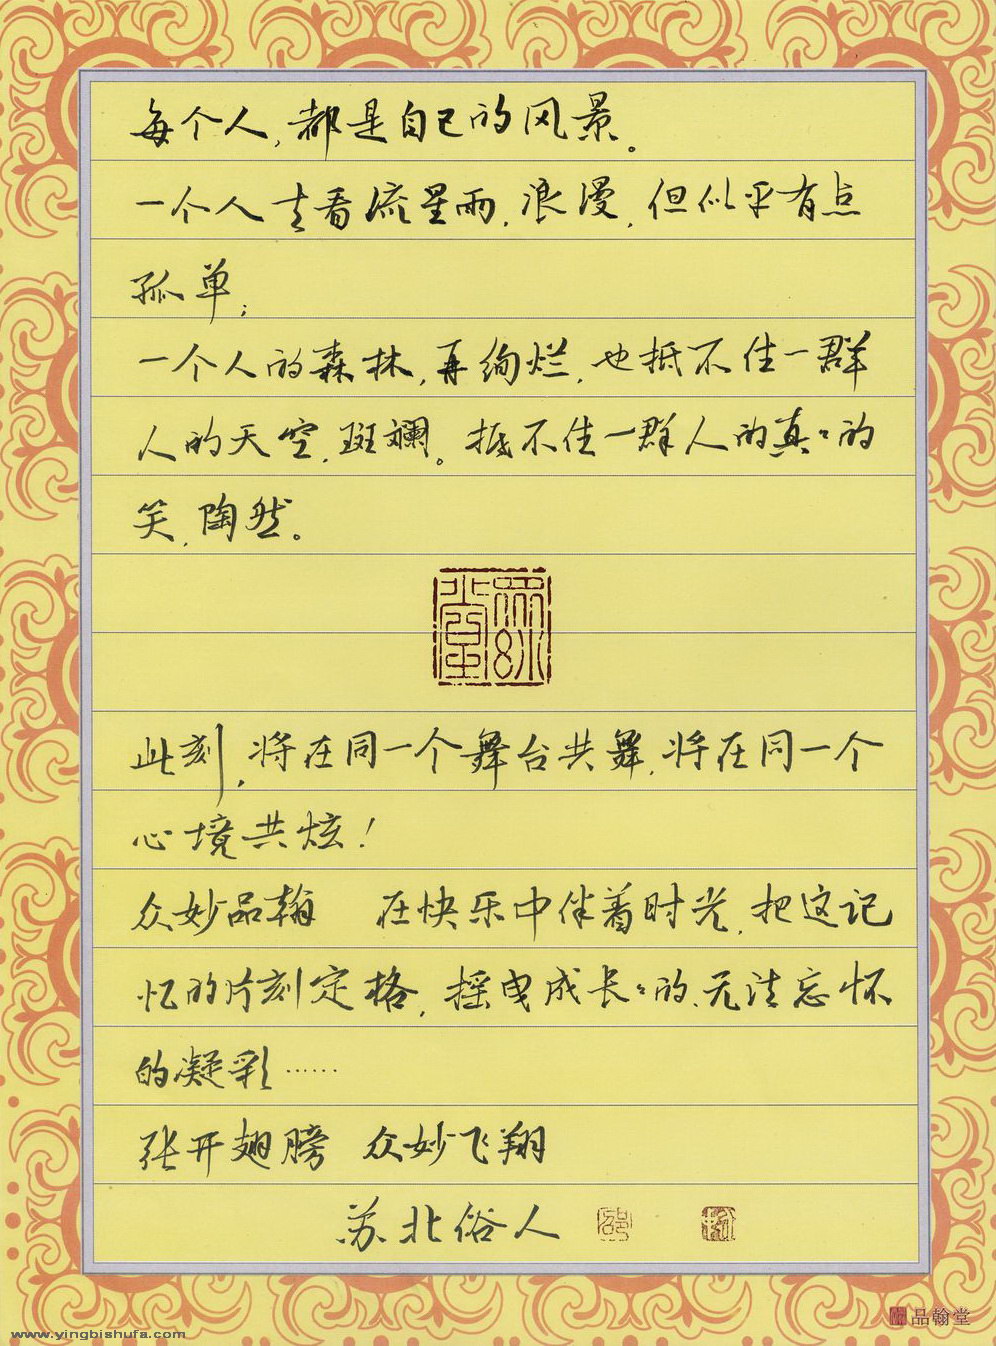 每个人,都是自己的风景。
一个人去看流星雨,浪漫,但似乎有点
孤单;
一个人的森林,再绚烂,也抵不住一群
人的天空,斑斓。抵不住一群人的真真的
笑,陶然。
此刻,将在同一个舞台共舞,将在同一个
心境共炫!
众妙品翰 在快乐中伴着时光,把这记
忆的片刻定格,摇曳成长长的、无法忘怀
的凝彩……
张开翅膀 众妙飞翔
苏北俗人
品翰堂
www.yingbishufa.com